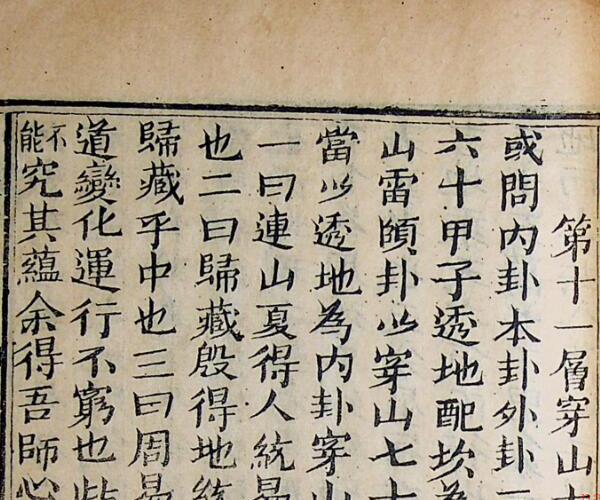 第十一層穿山
或問內卦本卦外卦
六十甲子透地配坎為
山雷頤卦以穿山七十
當以透地為內卦穿山
一曰連山夏得人統易
也二曰歸藏殷得地統
歸藏乎中也三曰周易
道變化運行不窮也此
不能究其蘊余得吾師心